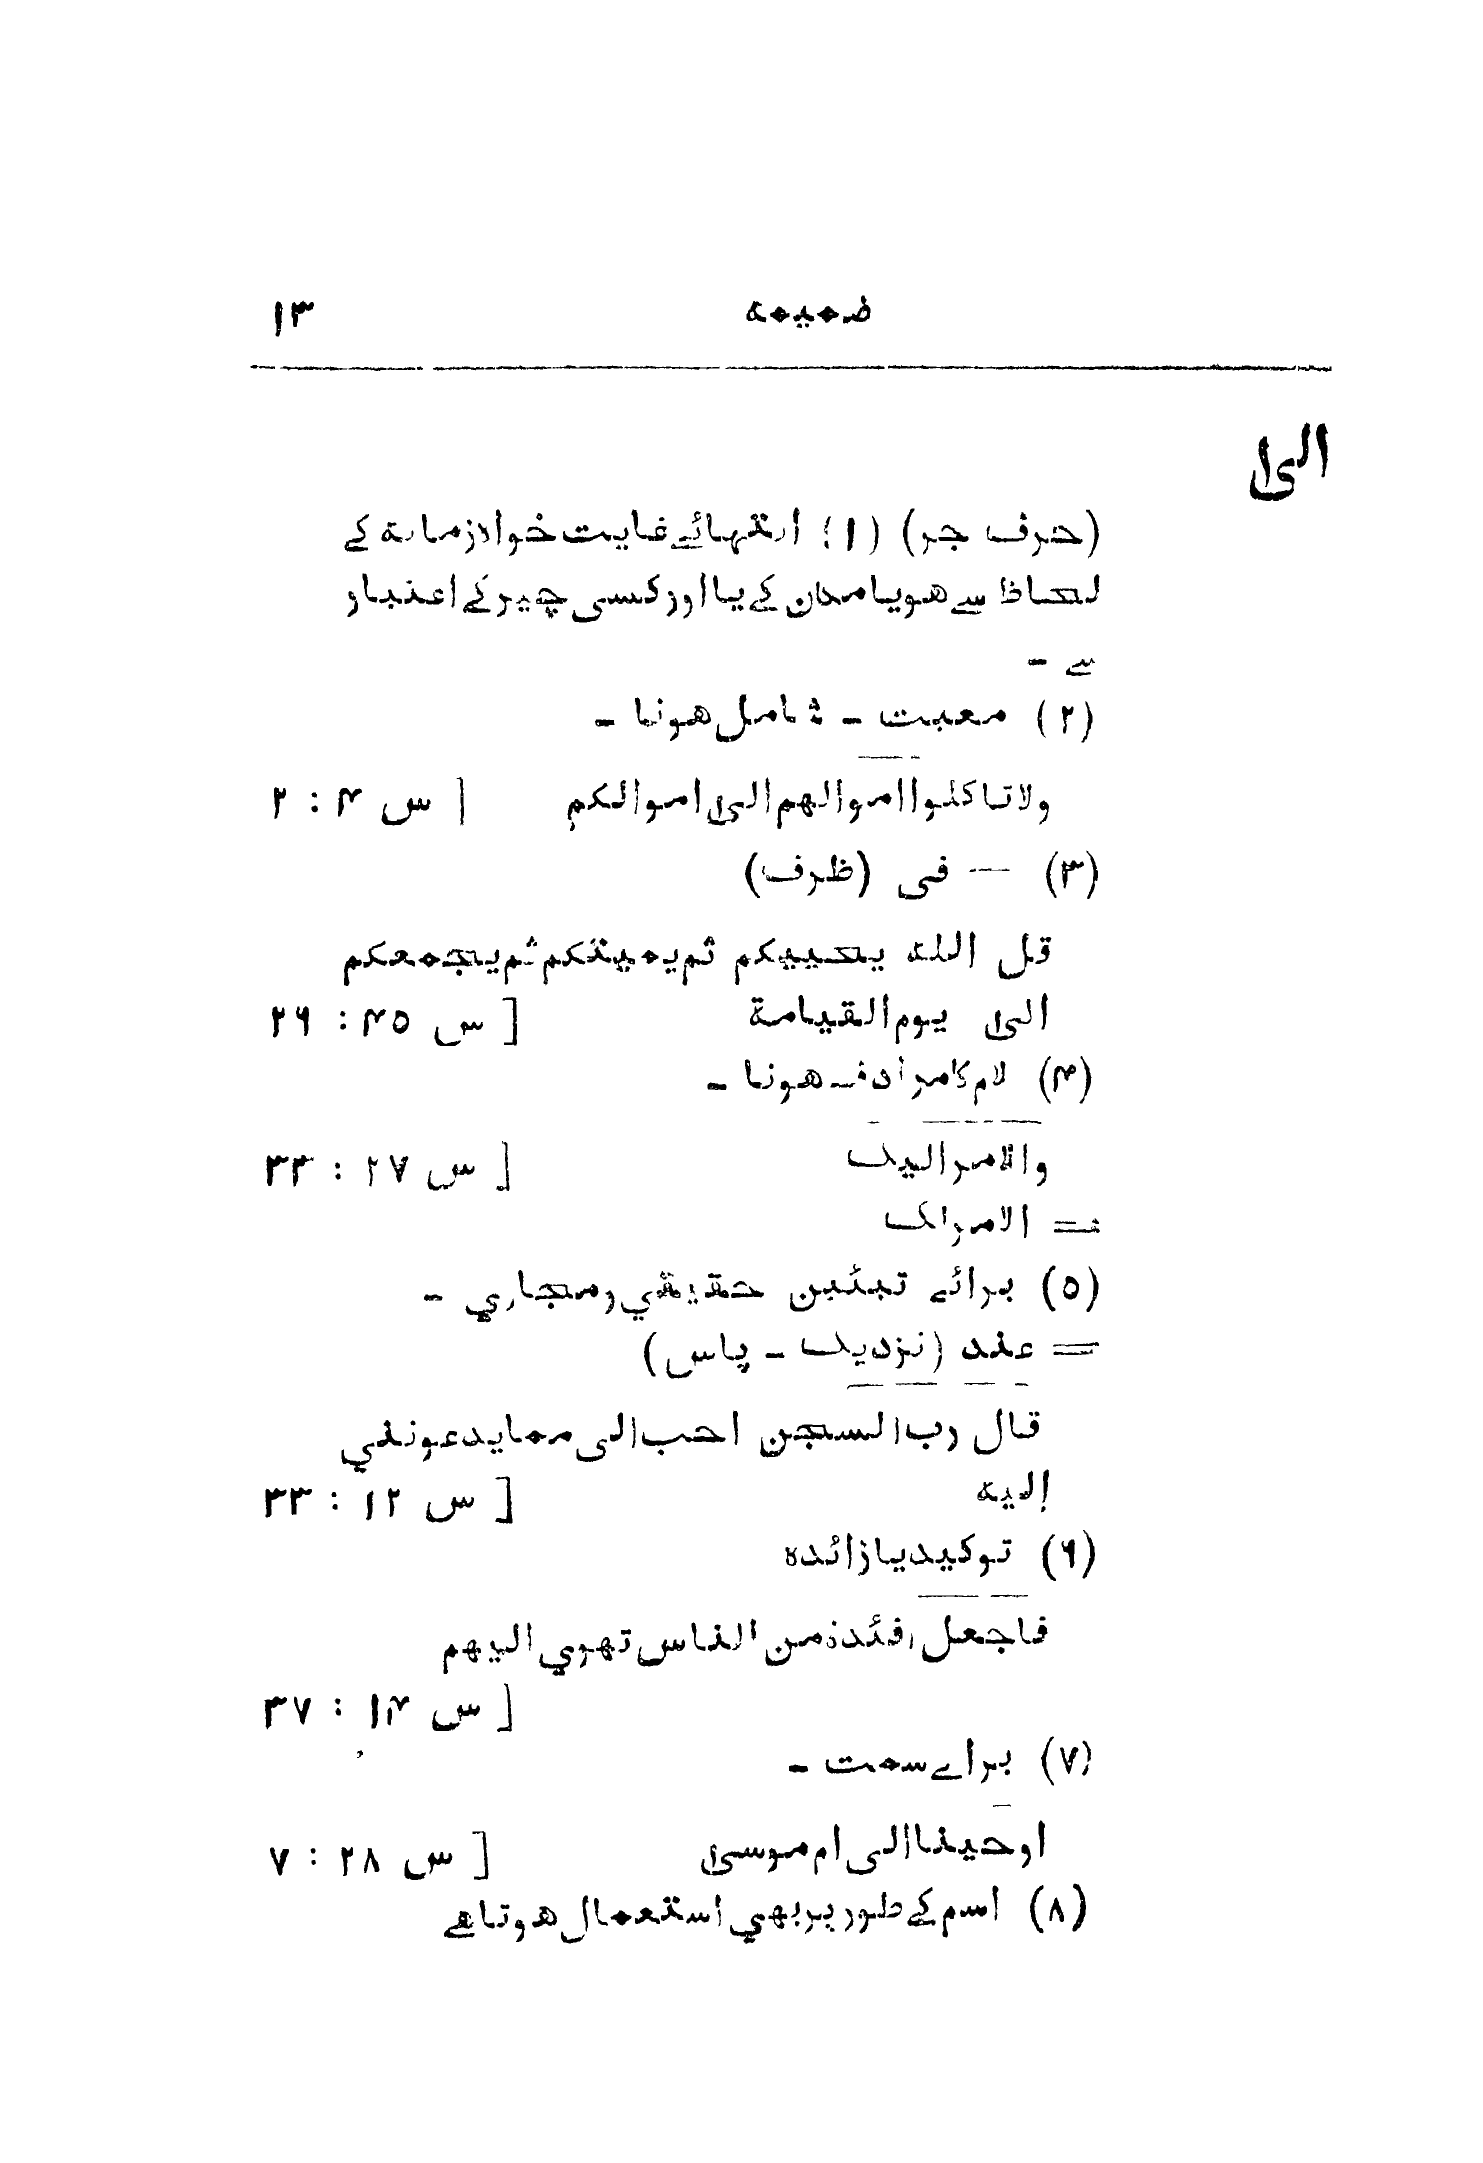 ضمیمه ۱۳
الیٰ
(حرف جر) (۱) انتہائے غایت خواہ زمانہ کے
لحاظ سے هو یا مکان کے یا اور کسی چیز کے اعتبار
سے -
(۲) معیت - شامل هونا -
ولا تاکلوا اموالهم الیٰ اموالکم [ س ۴ : ۲
(۳) — فی (ظرف)
قل الله یحییکم ثم یمیتکم ثم یجمعکم
الیٰ یوم القیامة [ س ۴۵ : ۲۶
(۴) لام کا مرادف هونا -
والامر الیک [ س ۲۷ : ۳۳
= الامر لک
(۵) برائے تبئین حقیقي و مجازي -
= عند (نزدیک - پاس)
قال رب السجن احب الی مما یدعونني
إلیه [ س ۱۲ : ۳۳
(۶) توکید یا زائده
فاجعل افئدة من الناس تهوي الیهم
[ س ۱۴ : ۳۷
(۷) براے سمت -
اوحینا الی ام موسیٰ [ س ۲۸ : ۷
(۸) اسم کے طور پر بهي استعمال هوتا هے